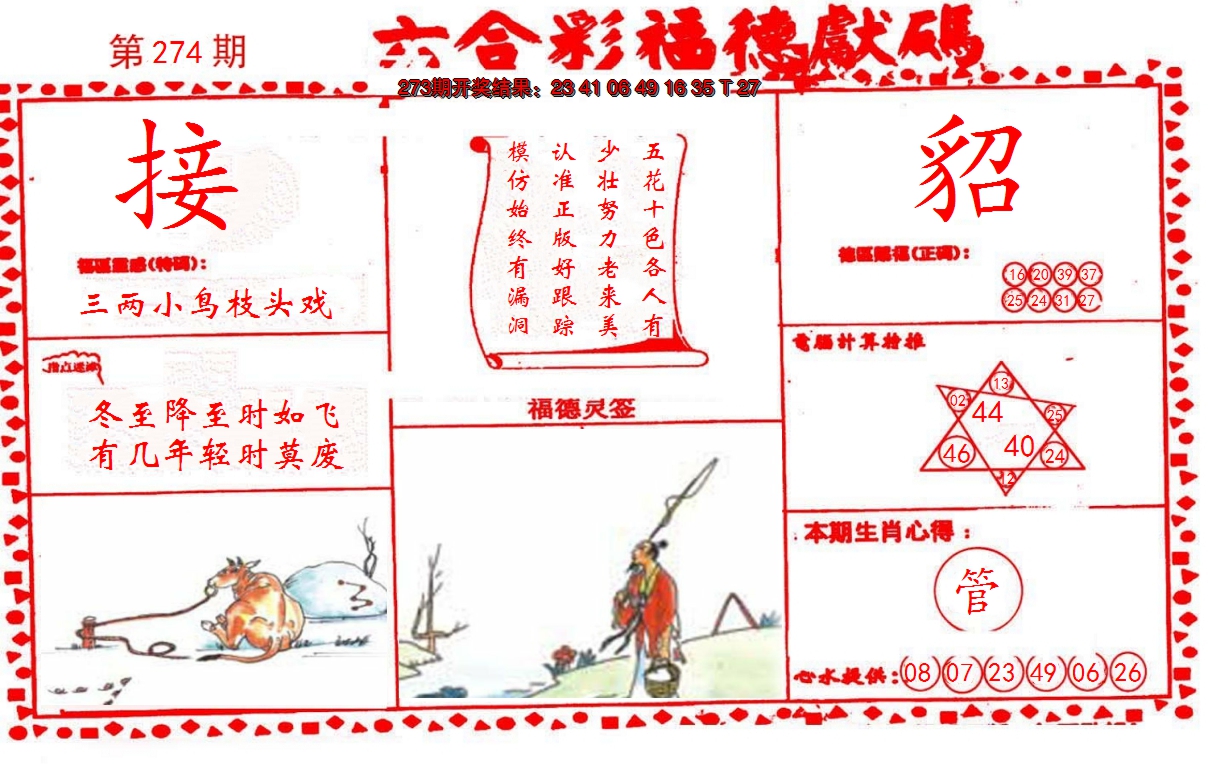 第 274 期
六合彩福德獻碼
273期开奖结果：23 41 06 49 16 35 T 27
接
福區靈感(特碼)：
三两小鸟枝头戏
指点迷津
冬至降至时如飞
有几年轻时莫废
五花十色各人有
少壮努力老来美
认准正版好跟踪
模仿始终有漏洞
福德灵签
貂
德區賜福(正碼)：
16 20 39 37
25 24 31 27
電腦計算推
13
02 44 25
46 40 24
12
本期生肖心得：
管
心水提供：08 07 23 49 06 26